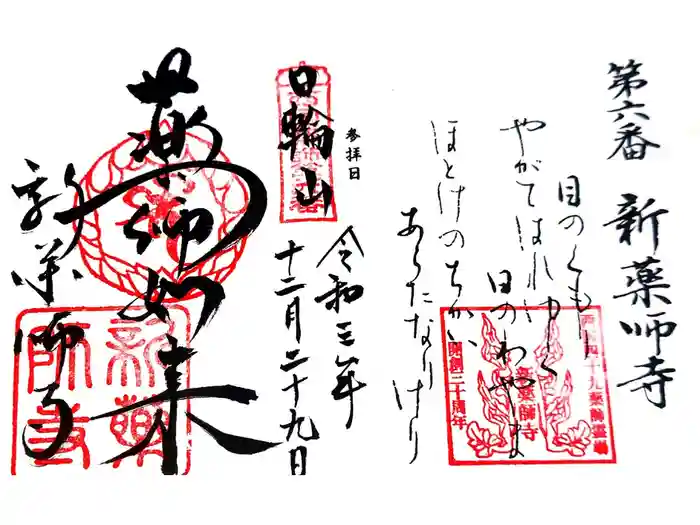 第六番 新薬師寺
目のくもり
やがてはれゆく
日のわやま
あらたなりけり
ほとけのちかい
西国四十九薬師霊場
新薬師寺
開創三十周年
参拝日
令和三年
十二月二十九日
日輪山
薬師如来
新薬師寺
新薬師寺